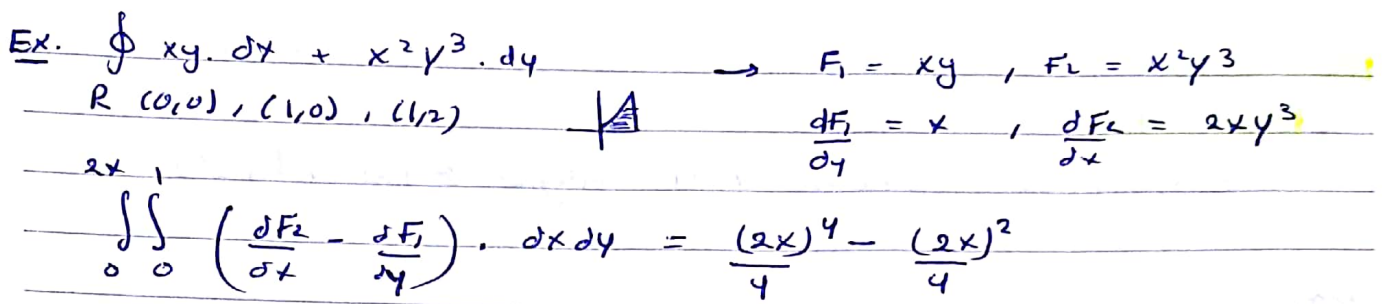 Ex. ∮ xy. dx + x²y³. dy → F₁ = xy , F₂ = x²y³
R (0,0), (1,0), (1,2) dF₁/dy = x , dF₂/dx = 2xy³
∫₀^2x ∫₀^1 (dF₂/dx - dF₁/dy) . dx dy = (2x)⁴/4 - (2x)²/4